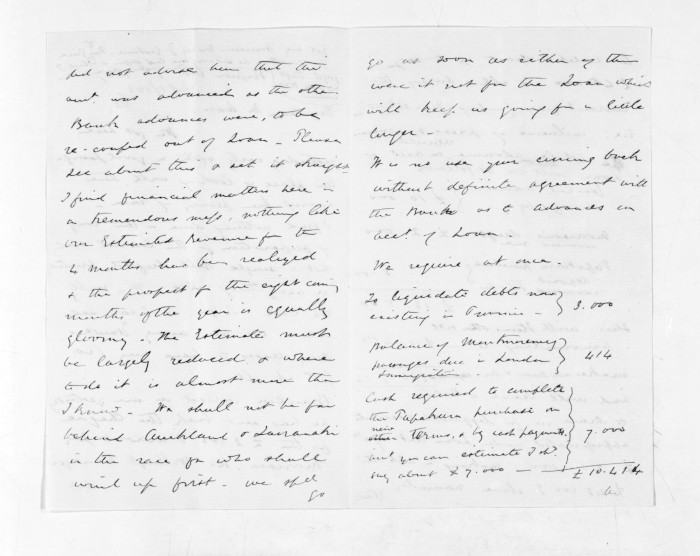 did not advise him that the
amt. was advanced as the other
Bank advances were, to be
re-couped out of Loan _ Please
see about this & set it straight
I find financial matters here in
a tremendous mess, nothing like
our Estimated Revenue for the
4 months has been realized
& the prospect for the eight coming
months of the year is equally
gloomy. The Estimates must
be largely reduced & where
to do it is almost more than
I know _ We shall not be far
behind Auckland & Taranaki
in the race for who shall
wind up first _ we shd
go
go as soon as either of them
were it not for the Loan which
will keep us going for a little
longer _
It is no use your coming back
without definite agreement with
the Bank as to advances on
acct. of Loan.
We require at once.
To liquidate debts now
existing in Provin. _ } 3.000
Balance of Montmorency
passages due in London } 414
Immigration.
Cash required to complete
the Tapakura purchase on
new
other terms, & by cash payments } 7.000
amt. you can estimate I shd.
say about £7.000 __ £10.414